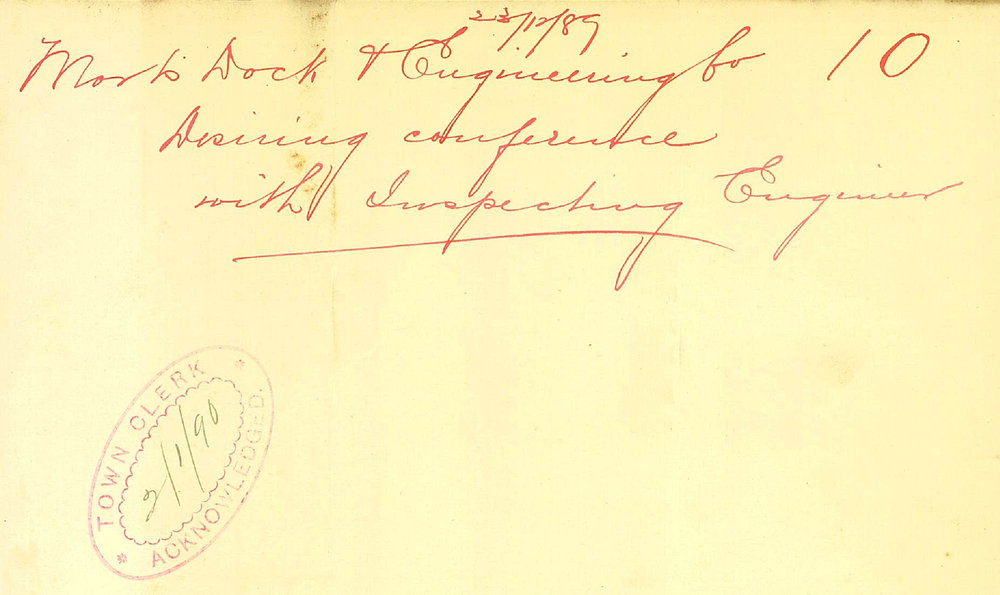 23/12/89
Morts Dock & Engineering Co 10
Desiring conference
with Inspecting Engineer
TOWN CLERK
2/1/90
ACKNOWLEDGED.